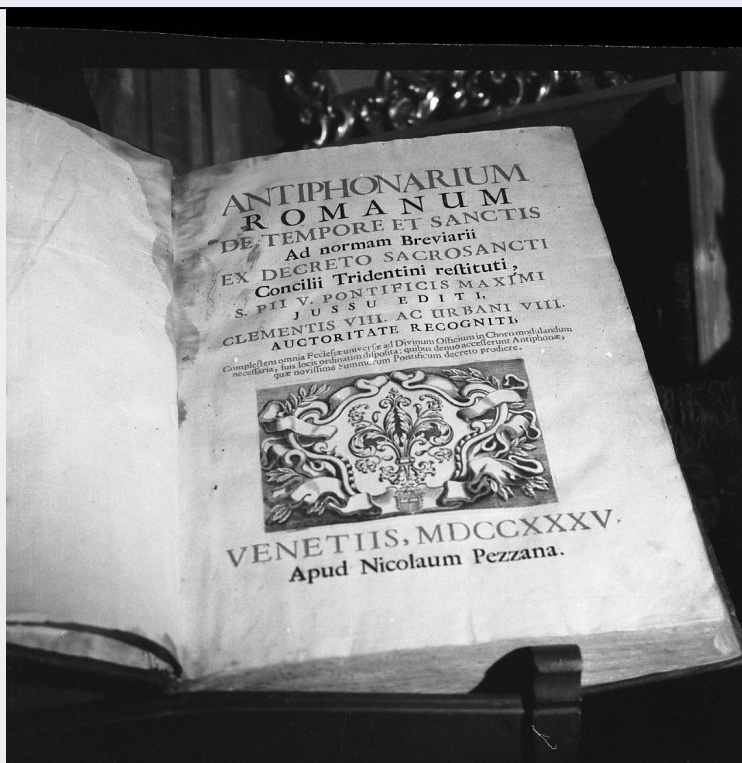 ANTIPHONARIUM
ROMANUM
DE TEMPORE ET SANCTIS
Ad normam Breviarii
EX DECRETO SACROSANCTI
Concilii Tridentini reſtituti,
S. PII V. PONTIFICIS MAXIMI
JUSSU EDITI,
CLEMENTIS VIII. AC URBANI VIII.
AUCTORITATE RECOGNITI,
Complectens omnia Eccleſiæ univerſæ ad Divinum Officium in Choro modulandum
neceſſaria, ſuis locis ordinatim diſpoſita: quibus denuò acceſſerunt Antiphonæ,
quæ noviſſimè Summorum Pontificum decreto prodiere.
VENETIIS, MDCCXXXV.
Apud Nicolaum Pezzana.